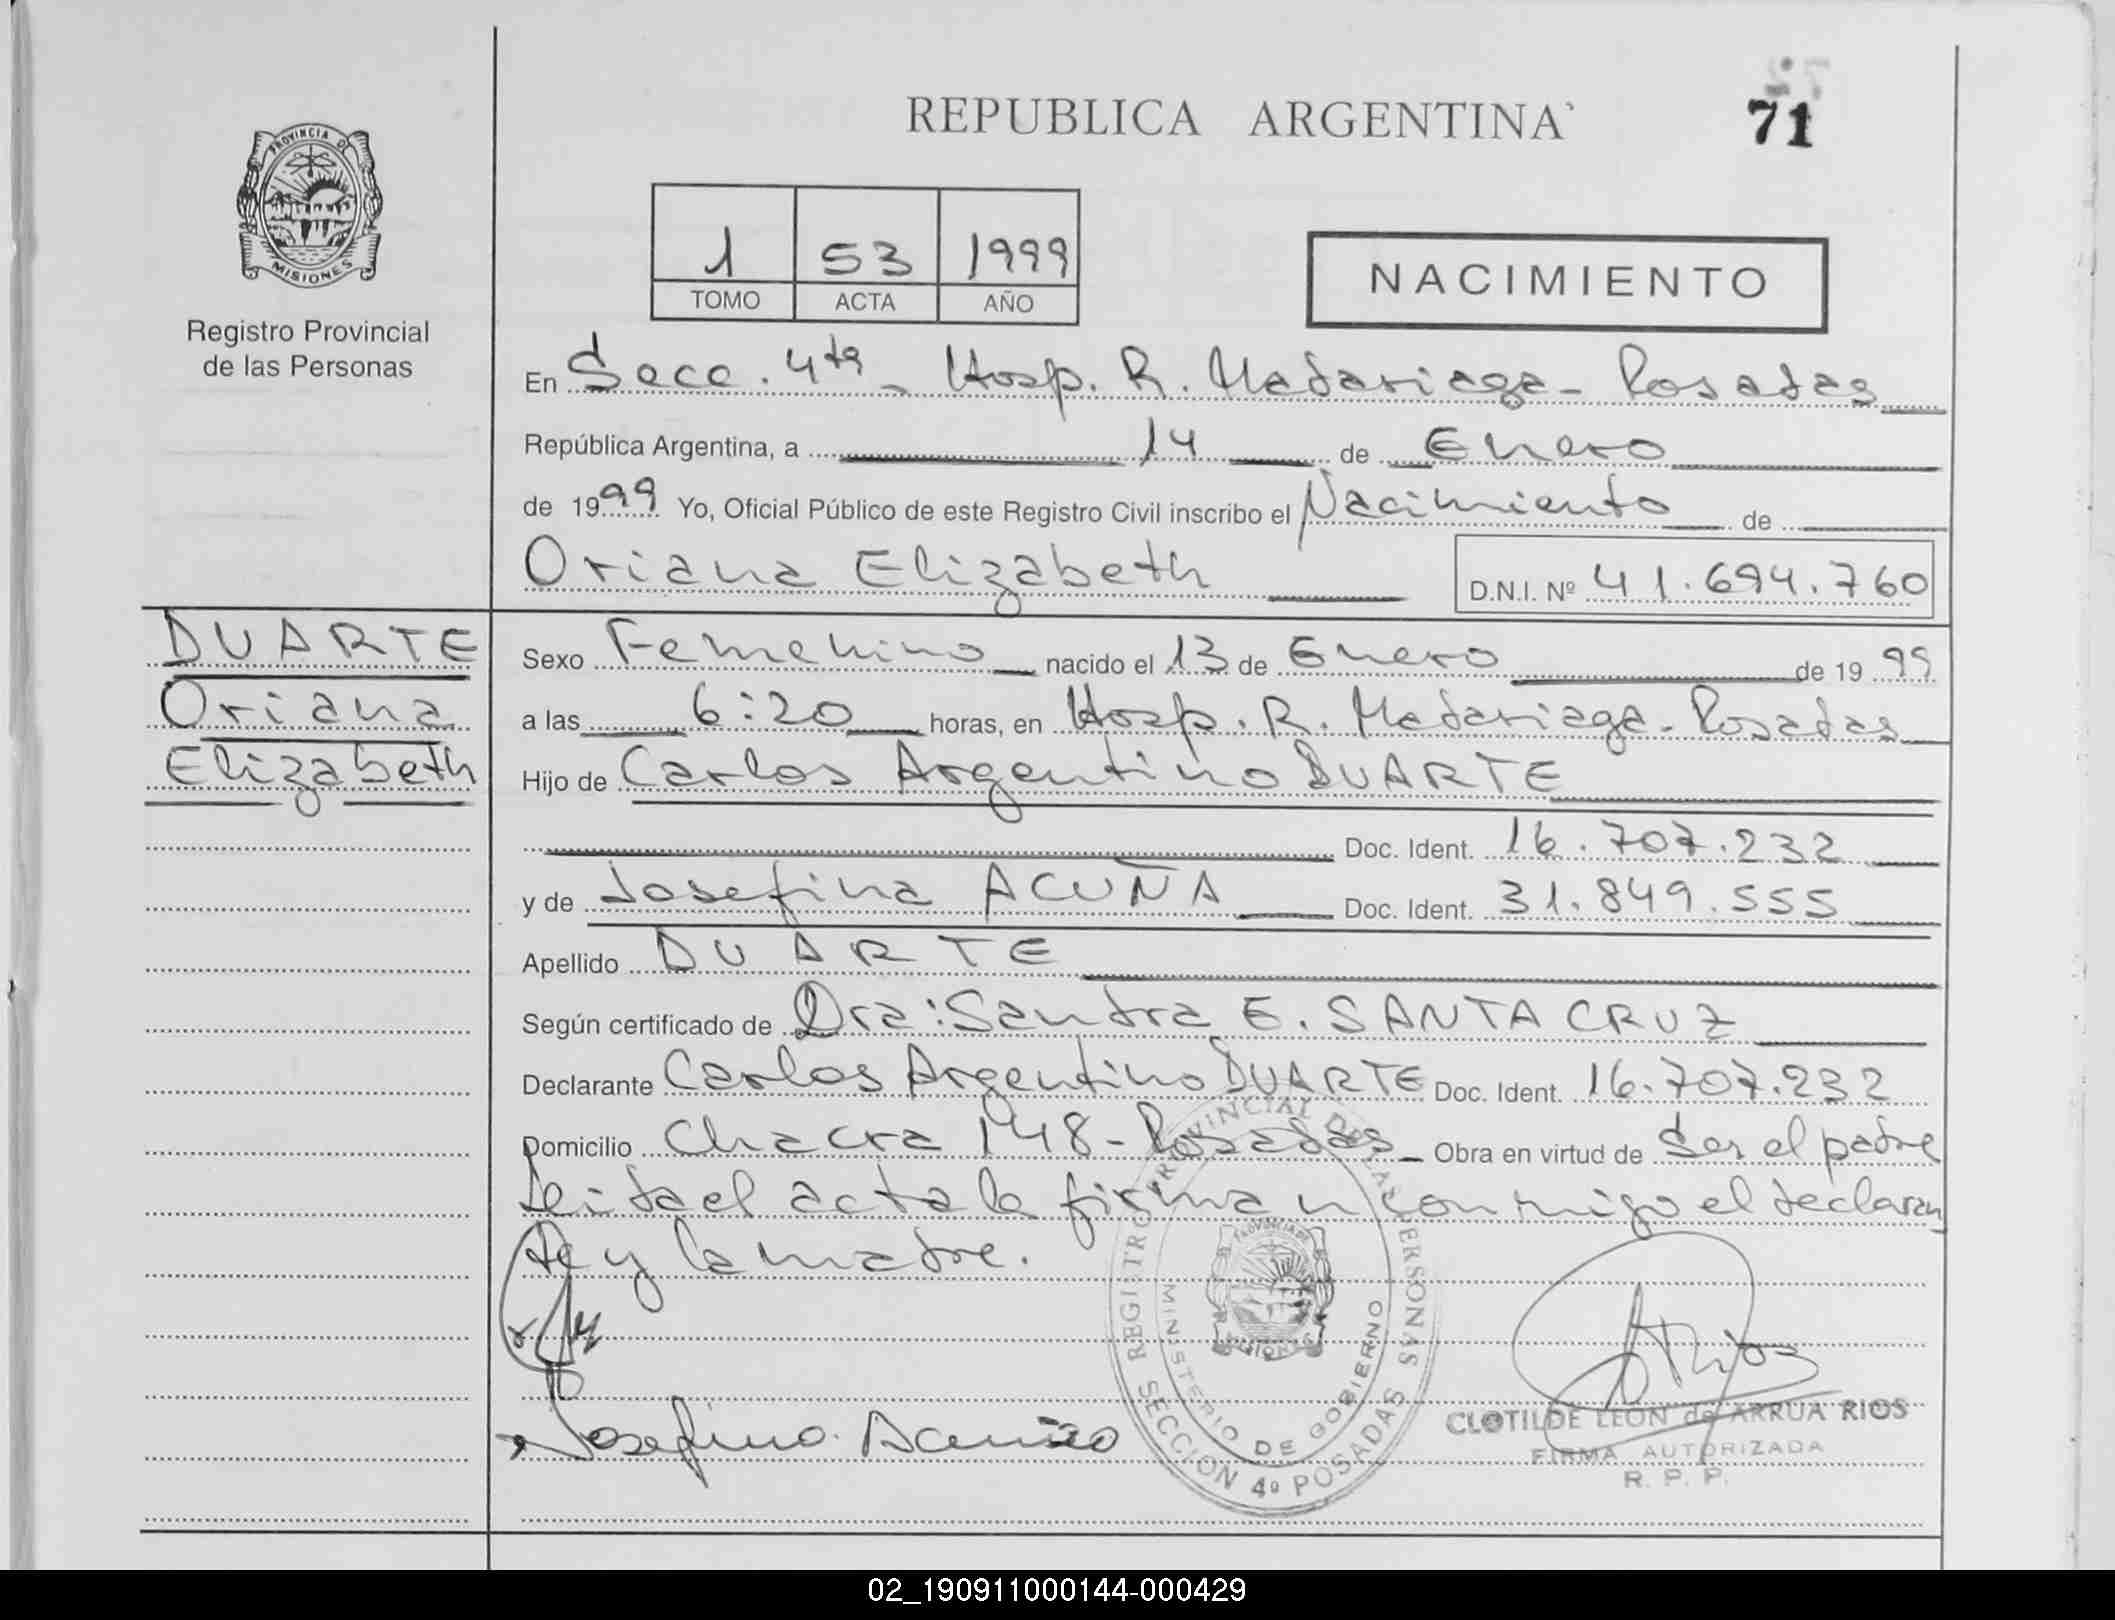 REPUBLICA ARGENTINA
71
PROVINCIA DE
MISIONES
Registro Provincial
de las Personas
1 53 1999
TOMO ACTA AÑO
NACIMIENTO
En Secc. 4ta - Hosp. R. Madariaga - Posadas
República Argentina, a 14 de Enero
de 1999 Yo, Oficial Público de este Registro Civil inscribo el Nacimiento de
Oriana Elizabeth D.N.I. Nº 41.694.760
DUARTE
Oriana
Elizabeth
Sexo Femenino nacido el 13 de Enero de 1999
a las 6:20 horas, en Hosp. R. Madariaga - Posadas
Hijo de Carlos Argentino DUARTE
Doc. Ident. 16.707.232
y de Josefina ACUÑA Doc. Ident. 31.849.555
Apellido DUARTE
Según certificado de Dra: Sandra E. SANTA CRUZ
Declarante Carlos Argentino DUARTE Doc. Ident. 16.707.232
Domicilio Chacra 148 - Posadas - Obra en virtud de Ser el padre
Leida el acta la firman conmigo el declaran
te y la madre.
REGISTRO PROVINCIAL DE LAS PERSONAS
MINISTERIO DE GOBIERNO
SECCION 4º POSADAS
Josefina Acuña
CLOTILDE LEON de ARRUA RIOS
FIRMA AUTORIZADA
R. P. P.
02_190911000144-000429